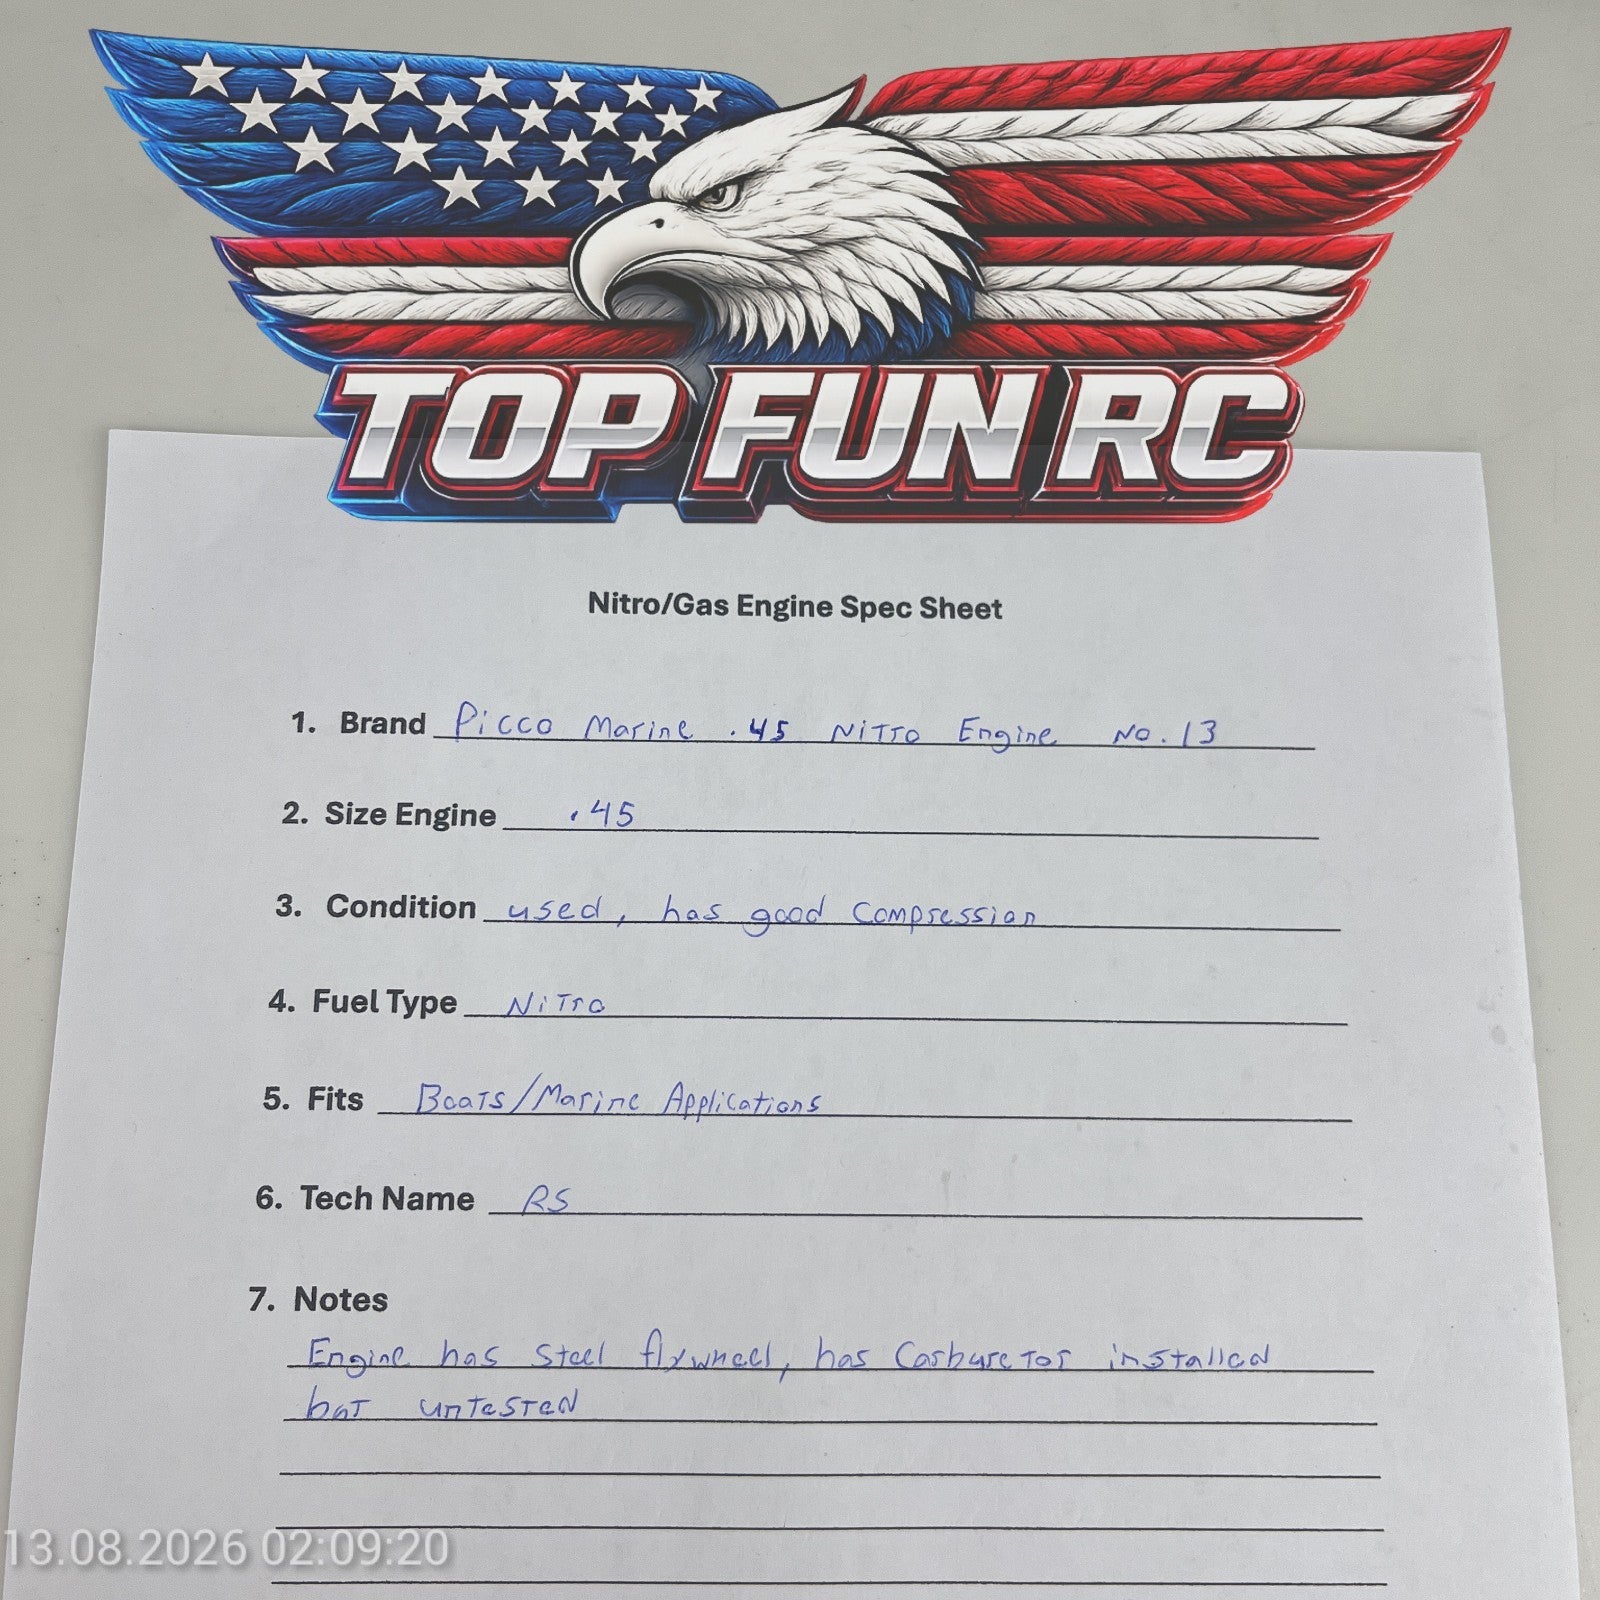 TOP FUN RC
Nitro/Gas Engine Spec Sheet
1. Brand Picco Marine .45 Nitro Engine No. 13
2. Size Engine .45
3. Condition used, has good compression
4. Fuel Type Nitro
5. Fits Boats/Marine Applications
6. Tech Name RS
7. Notes
Engine has steel flywheel, has Carburetor installed
but untested
13.08.2026 02:09:20